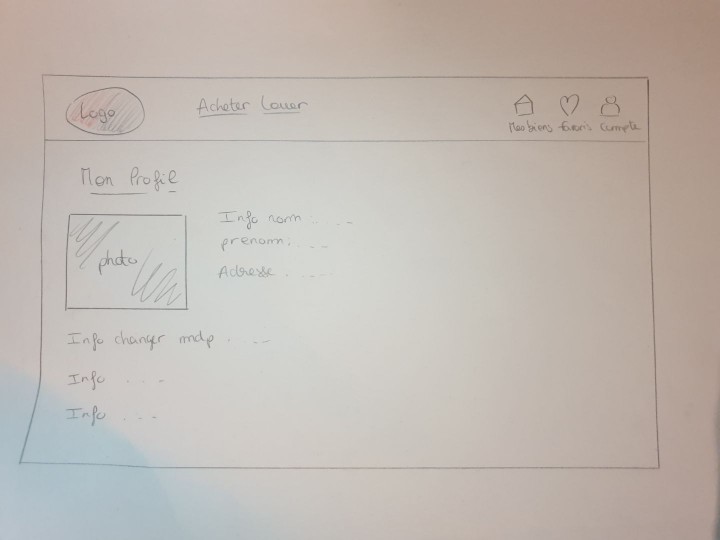 Logo
Acheter Louer
Mes biens favoris Compte
Mon Profil
photo
Info nom : . _ _
prenom : . _ _
Adresse . . _ _
Info changer mdp . _ _
Info . . _
Info . . _